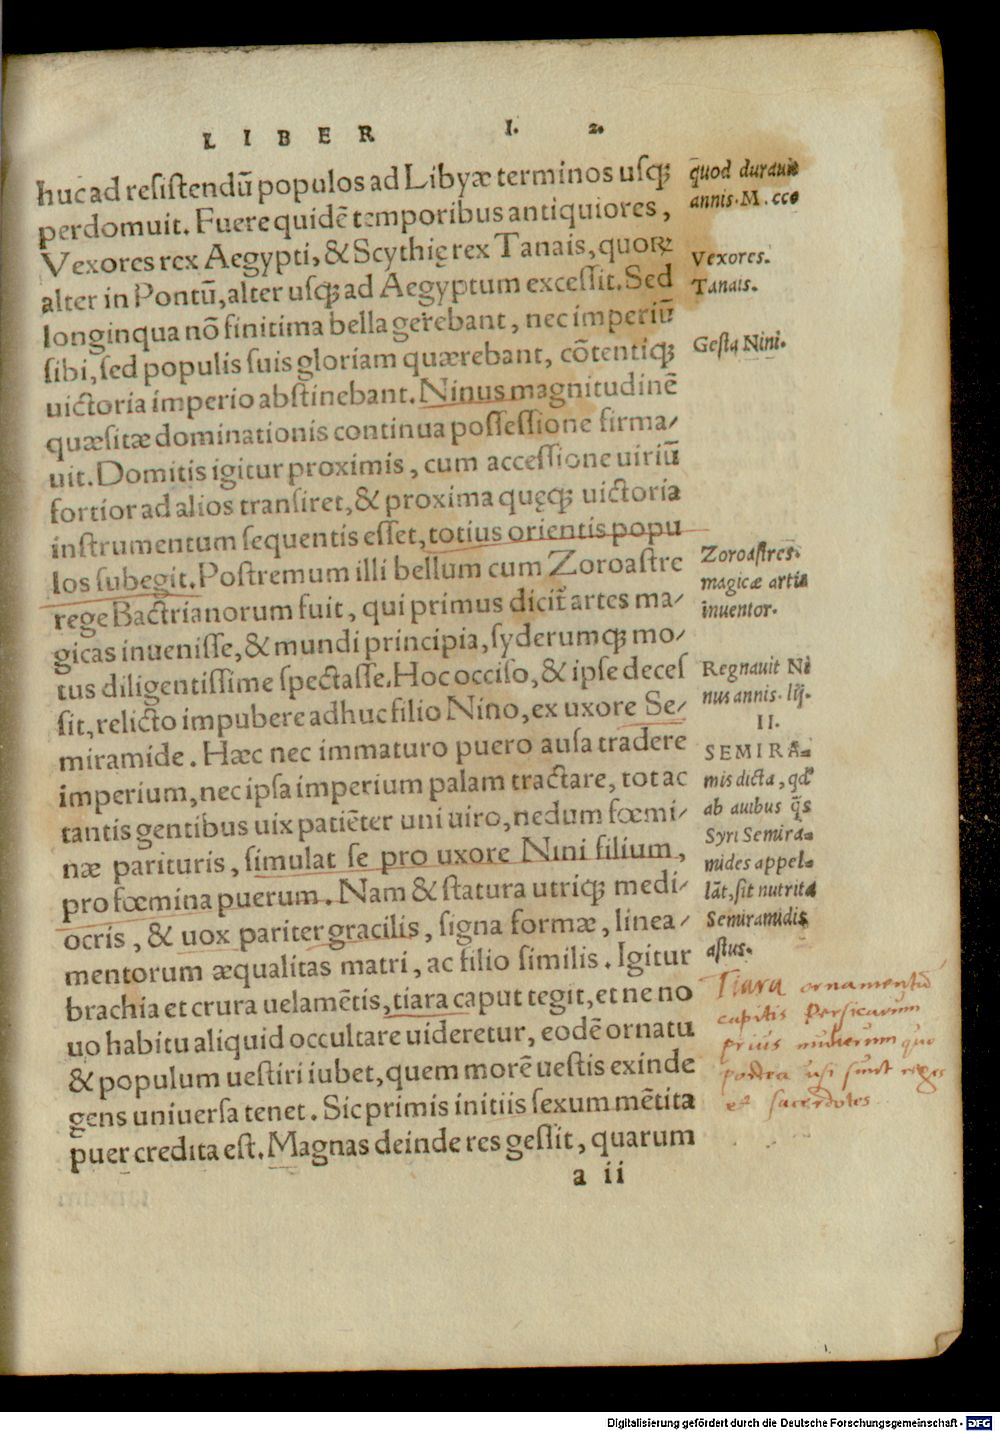 LIBER I. 2.
huc ad resistendū populos ad Libyæ terminos usqꝫ
perdomuit. Fuere quidē temporibus antiquiores,
Vexores rex Aegypti, & Scythię rex Tanais, quoꝝ
alter in Pontū, alter usqꝫ ad Aegyptum excessit. Sed
longinqua nō finitima bella gerebant, nec imperiū
sibi, sed populis suis gloriam quærebant, cōtentiqꝫ
uictoria imperio abstinebant. Ninus magnitudinē
quæsitæ dominationis continua possessione firma/
uit. Domitis igitur proximis, cum accessione uiriū
fortior ad alios transiret, & proxima quęqꝫ uictoria
instrumentum sequentis esset, totius orientis popu
los subegit. Postremum illi bellum cum Zoroastre
rege Bactrianorum fuit, qui primus dicit̄ artes ma/
gicas inuenisse, & mundi principia, syderumqꝫ mo/
tus diligentissime spectasse. Hoc occiso, & ipse deces
sit, relicto impubere adhuc filio Nino, ex uxore Se/
miramide. Hæc nec immaturo puero ausa tradere
imperium, nec ipsa imperium palam tractare, tot ac
tantis gentibus uix patiēter uni uiro, nedum fœmi/
næ parituris, simulat se pro uxore Nini filium,
pro fœmina puerum. Nam & statura utriqꝫ medi/
ocris, & uox pariter gracilis, signa formæ, linea/
mentorum æqualitas matri, ac filio similis. Igitur
brachia et crura uelamētis, tiara caput tegit, et ne no
uo habitu aliquid occultare uideretur, eodē ornatu
& populum uestiri iubet, quem morē uestis exinde
gens uniuersa tenet. Sic primis initiis sexum mētita
puer credita est. Magnas deinde res gessit, quarum
a ii
quod durauit
annis. M. ccc
Vexores.
Tanais.
Gesta Nini.
Zoroastres.
magicæ artis
inuentor.
Regnauit Ni
nus annis. lij.
II.
SEMIRA-
mis dicta, qd'
ab auibus q̄s
Syri Semira-
mides appel-
lāt, sit nutrita
Semiramidis
astus.
Tiara ornamentū
capitis Persicarum
prius mulierum quo
postea usi sunt reges
et sacerdotes
Digitalisierung gefördert durch die Deutsche Forschungsgemeinschaft - DFG